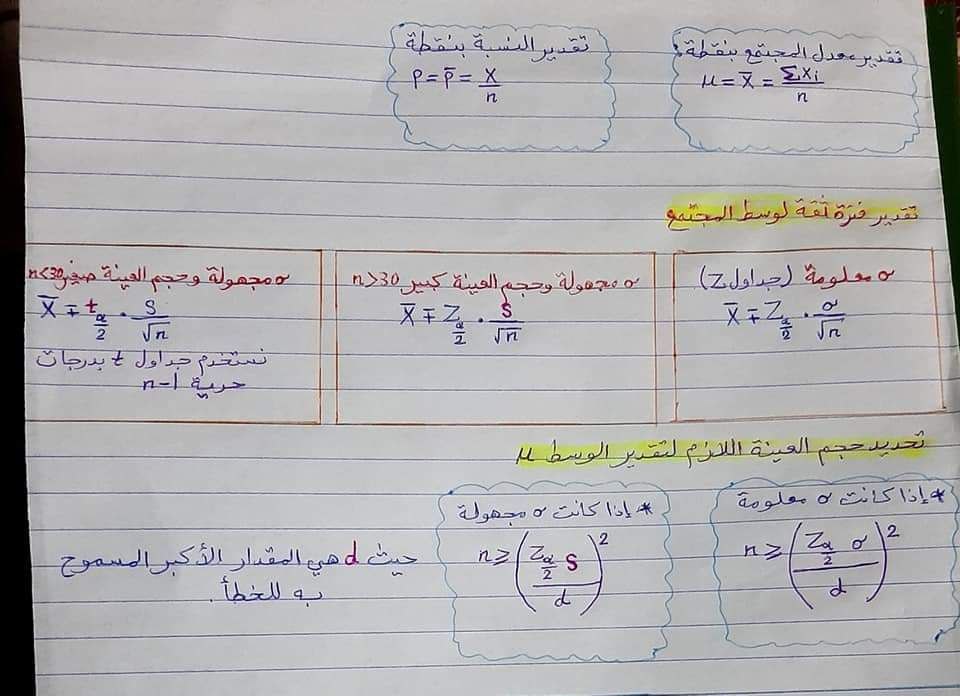 تقدير معدل المجتمع بنقطة:
μ = X̄ = ΣXi / n
تقدير النسبة بنقطة
P = P̄ = X / n
تقدير فترة ثقة لوسط المجتمع
σ معلومة (جداول Z)
X̄ ∓ Z α/2 . σ/√n
σ مجهولة وحجم العينة كبير n>30
X̄ ∓ Z α/2 . S/√n
σ مجهولة وحجم العينة صغير n<30
X̄ ∓ t α/2 . S/√n
نستخدم جداول t بدرجات
حرية n-1
تحديد حجم العينة اللازم لتقدير الوسط μ
* إذا كانت σ معلومة
n ≥ (Z α/2 σ / d)²
* إذا كانت σ مجهولة
n ≥ (Z α/2 S / d)²
حيث d هي المقدار الأكبر المسموح
به للخطأ.